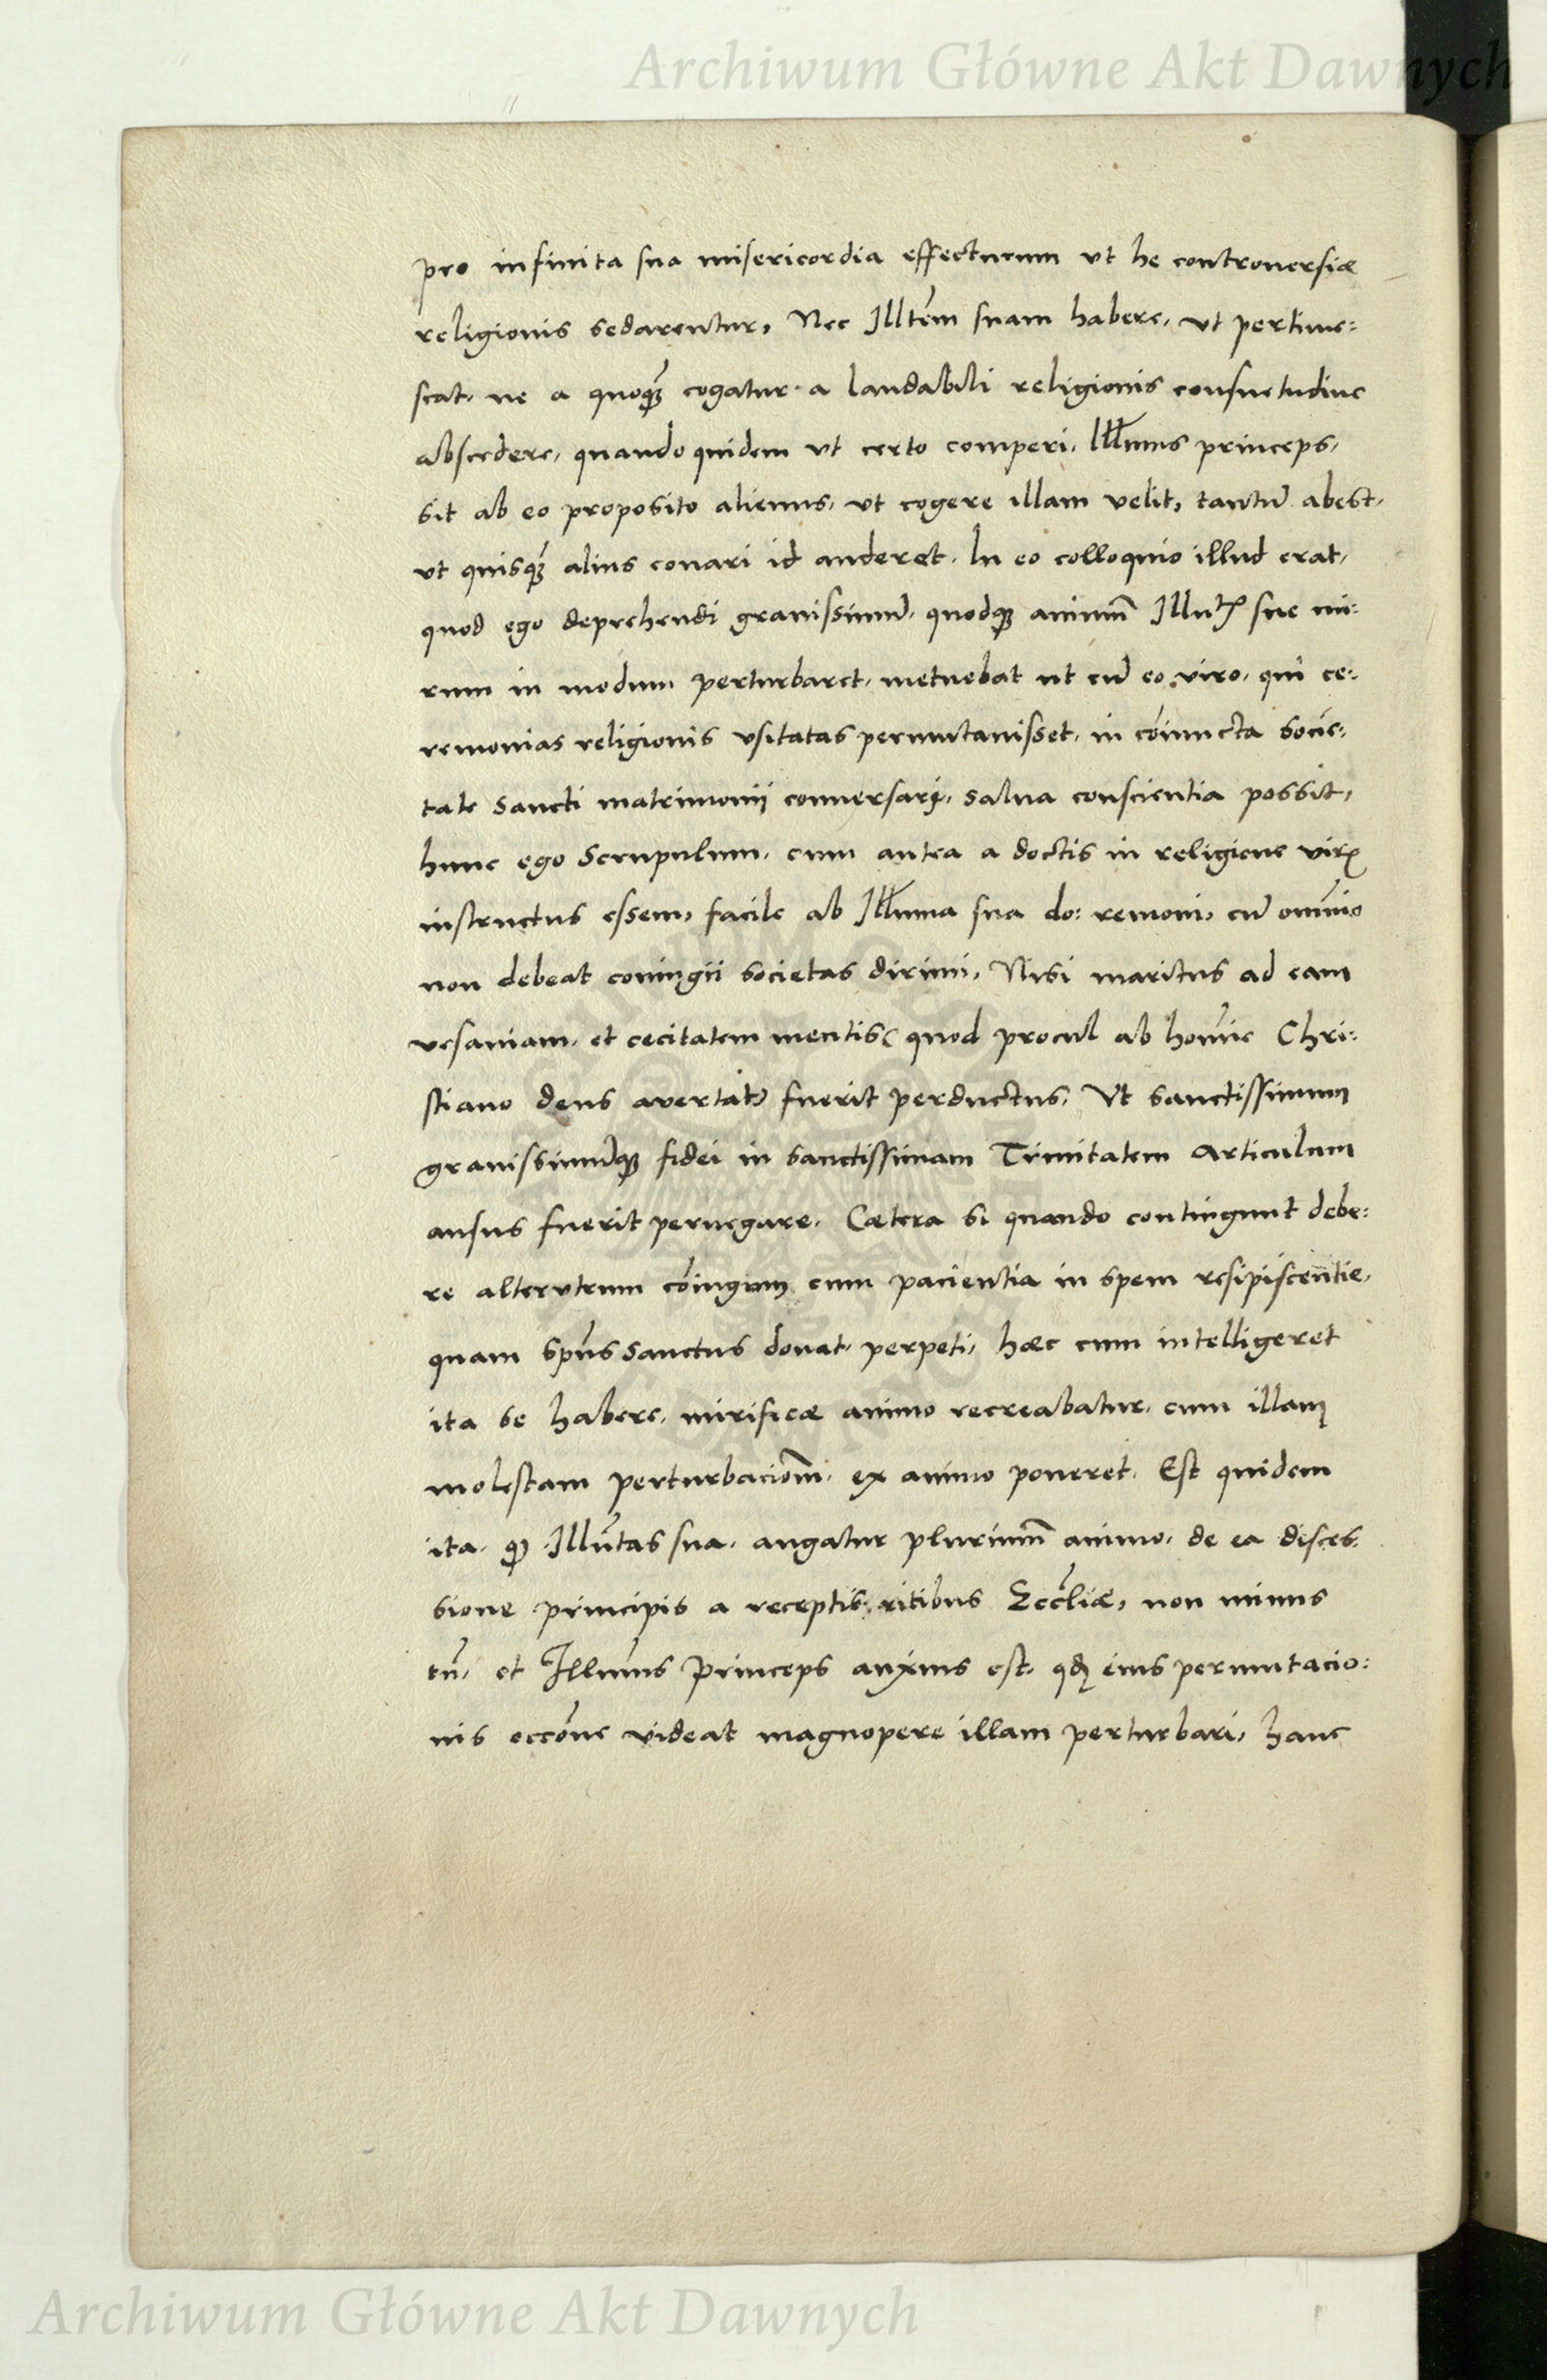 Archiwum Główne Akt Dawnych
pro infinita sua misericordia effecturum ut he controuersiæ
religionis sedarentur, Nec Illtem̃ suam habere, ut pertime:
scat, ne a quoq̃ȝ cogatur a laudabili religionis consuetudine
abscedere, quando quidem ut certo comperi, Illl̃mus princeps,
sit ab eo proposito alienus, ut cogere illam velit, tantũ abest,
ut quisq̃ȝ alius conari id auderet. In eo colloquio illud erat,
quod ego deprehendi grauissimũ, quodqȝ animũ Illutꝭ sue mi:
rum in modum perturbaret, metuebat ut cũ eo viro, qui ce:
remonias religionis usitatas permutauisset, in cõiuncta socie:
tate sancti matrimonii conuersari, salua conscientia possit,
hunc ego scrupulum, cum antea a doctis in religione virꝭ
instructus essem, facile ab Illl̃ma sua do: remoui, cũ omĩno
non debeat coniugii societas dirimi, Nisi maritus ad eam
vesaniam, et cecitatem mentis (quod procul ab homĩe Chri:
stiano deus avertat) fuerit perductus, Ut sanctissimum
grauissimũqȝ fidei in sanctissimam Trinitatem Articulum
ausus fuerit pernegare. Cætera si quando contingunt debe:
re alterutrum cõiugum cum pacientia in spem resipiscentie,
quam sp̃us sanctus donat, perpeti, hæc cum intelligeret
ita se habere, mirificæ animo recreabatur, cum illam
molestam perturbaciom̃, ex animo poneret. Est quidem
ita, ꝙ Illũtas sua, angatur plurimũ animo, de ea disces:
sione principis a receptis ritibus Eccl̃iæ, non minus
tñ, et Illum̃s Princeps anxius est, qđ eius permutacio:
nis occõne videat magnopere illam perturbari, hanc
Archiwum Główne Akt Dawnych